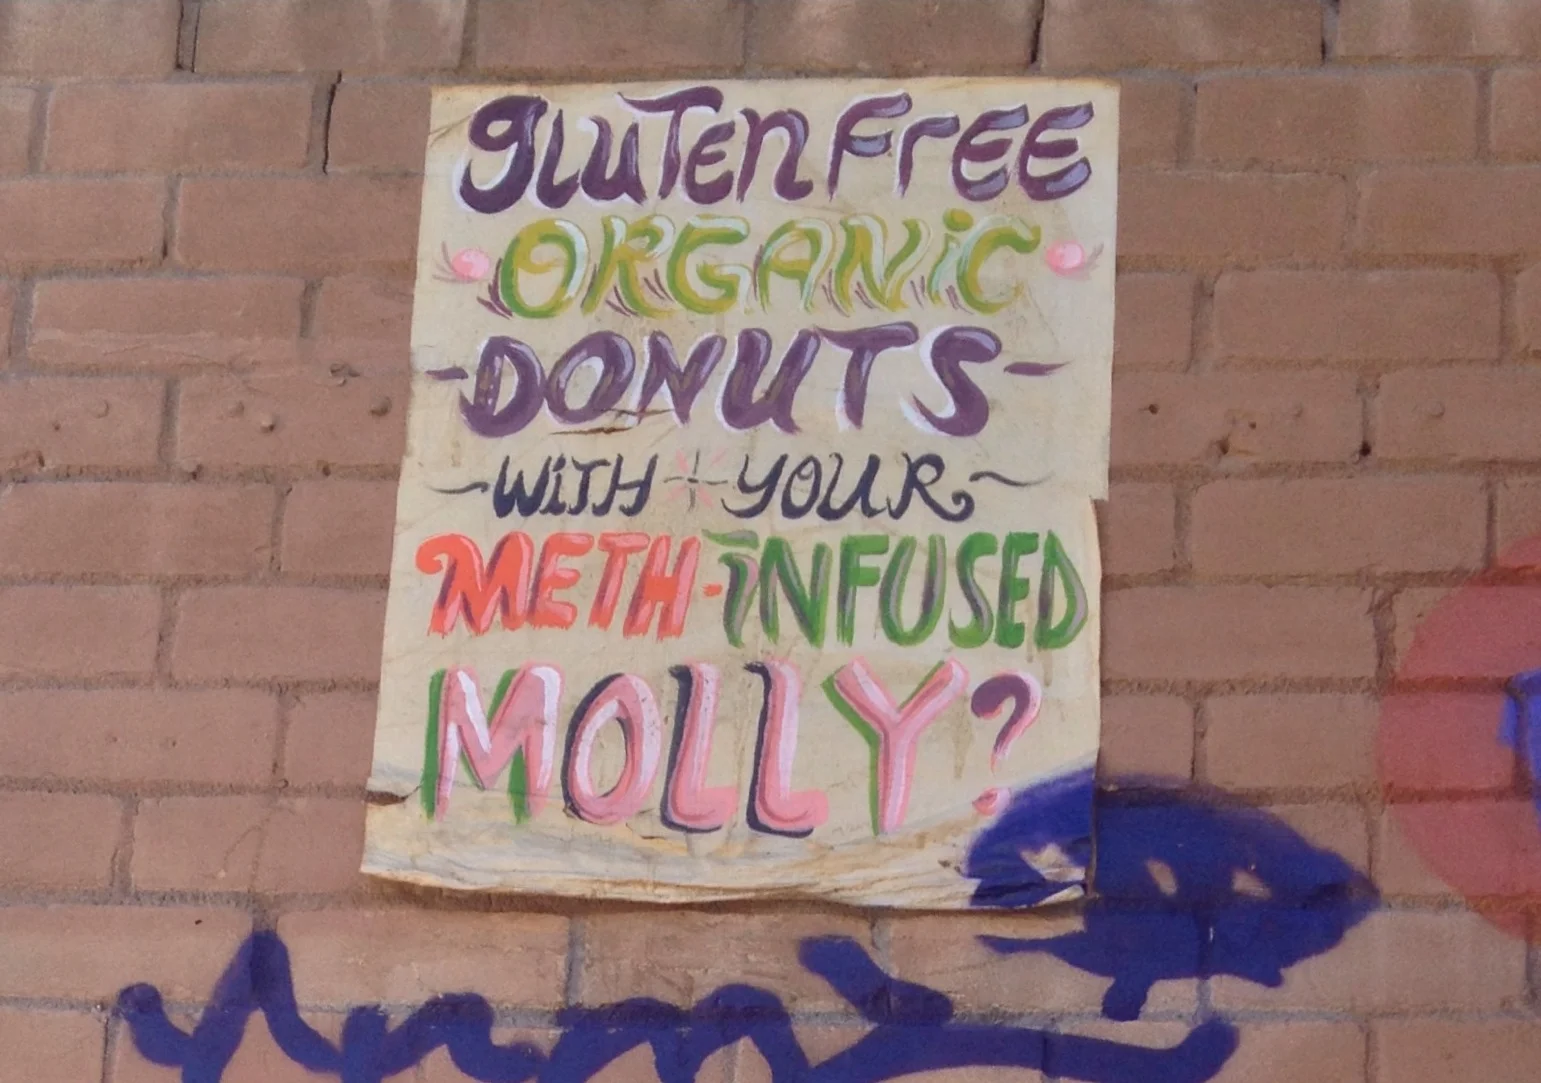 gLuTen FrEE
ORGANiC
-DONUTS-
WiTH YOUR
METH-iNFUSED
MOLLY?